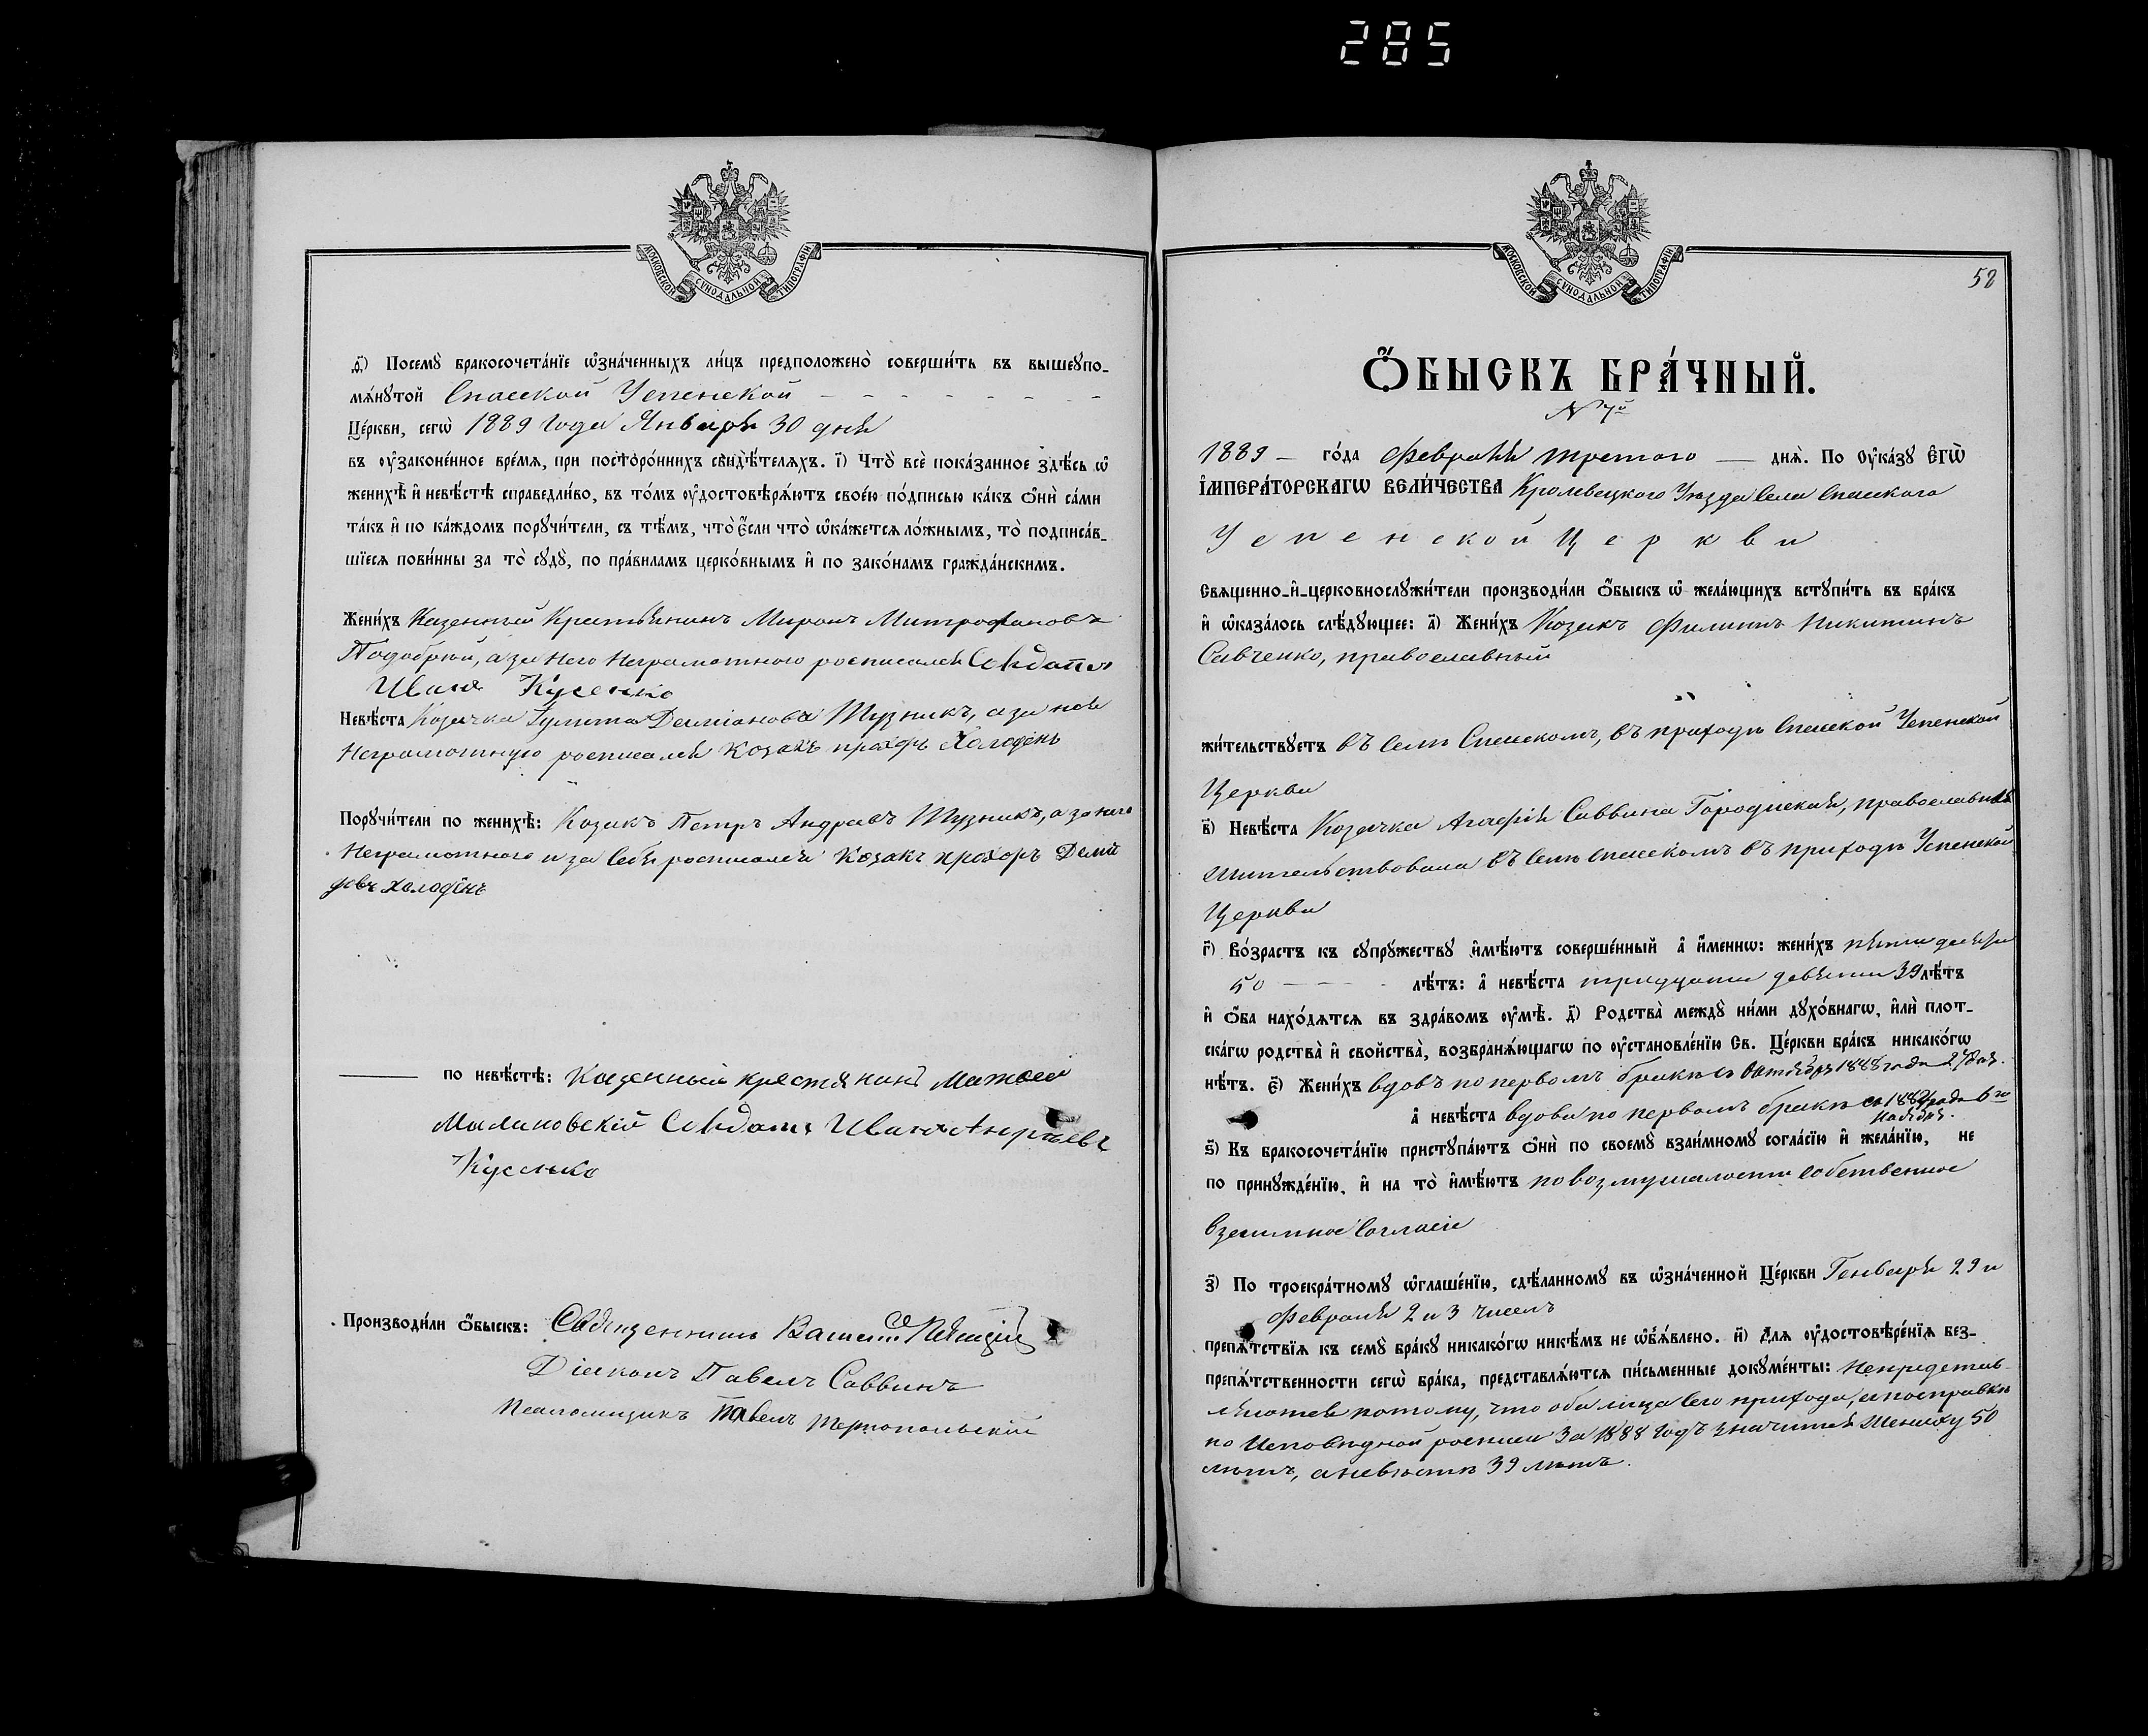 285
МОСКОВСКОЙ СѴНОДАЛЬНОЙ ТИПОГРАФІИ
ѳ҃) Посемꙋ̀ бракосочета́нїе ѡ҆зна́ченныхъ ли́цъ предположено̀ соверши́ть въ вышеꙋпо-
мѧ́нꙋтой Спасской Успенской
Це́ркви, сегѡ̀ 1889 года Января 30 дня
въ ᲂу҆зако́ненное вре́мѧ, при посторо́ннихъ свидѣ́телѧхъ. і҃) Что̀ всѐ пока́занное здѣ́сь ѡ҆
женихѣ̀ и҆ невѣ́стѣ справедли́во, въ то́мъ ᲂу҆достовѣрѧ́ютъ свое́ю по́дписью ка́къ ѻ҆нѝ са́ми
та́къ и҆ по ка́ждомъ порꙋчи́тели, съ тѣ́мъ, что̀ є҆́сли что̀ ѡ҆ка́жетсѧ ло́жнымъ, то̀ подписа́в-
шїесѧ пови́нны за то̀ сꙋдꙋ̀, по пра́виламъ церко́внымъ и҆ по зако́намъ гражда́нскимъ.
Жени́хъ Казенный Крестьянинъ Миронъ Митрофановъ
Подобрий, а за него Неграмотного росписался Солдатъ
Иванъ Кусенко
Невѣ́ста Козачка Гулита Даміанова Шузникъ, а за нея
Неграмотную росписался Козакъ прохоръ Холодѣнь
Порꙋчи́тели по женихѣ̀: Козакъ Петръ Андреевъ Шузникъ, а за него
Неграмотного и за Себя росписался Козакъ прохоръ Деми
довъ холодѣнь
по невѣ́стѣ: Казенный крестянинъ Матвей
Малиновскій Солдатъ Иванъ Андреевъ
Кусенко
Производи́ли ѻ҆́быскъ: Священникъ
Діаконъ Павелъ Саввинъ
Псаломщикъ Павелъ Тернопольскій
МОСКОВСКОЙ СѴНОДАЛЬНОЙ ТИПОГРАФІИ
58
Ѻ҆́БЫСКЪ БРА́ЧНЫЙ.
№ 7й
1889 – го́да Февраля третого — днѧ̀. По Оу҆ка́зꙋ Є҆гѡ̀
І҆мпера́торскагѡ Вели́чества Кролевецкого Уѣзда Села Спасского
Успенской Церкви
Свѧщенно-и҆-церковнослꙋжи́тели производи́ли ѻ҆́быскъ ѡ҆ жела́ющихъ встꙋпи́ть въ бра́къ
и҆ ѡ҆каза́лось слѣ́дꙋющее: а҃) Жени́хъ Козакъ Филиппъ Никитинъ
Савченко, православный
жи́тельствꙋетъ въ Селѣ Спасскомъ, въ приходѣ Спасской Успенской
Церкви
в҃) Невѣ́ста Козачка Агафія Саввина Городиская, православная
жительствовала въ Селѣ Спасскомъ въ приходѣ Успенской
Церкви
г҃) Во́зрастъ къ сꙋпрꙋ́жествꙋ и҆мѣ́ютъ соверше́нный а҆ и҆́меннѡ: жени́хъ пятидесяти
50 лѣ́тъ: а҆ невѣ́ста тридцати девяти 39 лѣ́тъ
и҆ ѻ҆́ба нахо́дѧтсѧ въ здра́вомъ ᲂу҆мѣ̀. д҃) Родства̀ междꙋ̀ ни́ми дꙋхо́внагѡ, и҆лѝ плот-
ска́гѡ родства̀ и҆ свойства̀, возбранѧ́ющагѡ по ᲂу҆становле́нїю Св. Це́ркви бра́къ никако́гѡ
нѣ́тъ. є҃) Жени́хъ вдовъ по первомъ бракѣ съ Октября 1888 года
а҆ невѣ́ста вдова по первомъ бракѣ съ года 6го
Ноября.
ѕ҃) Къ бракосочета́нїю пристꙋпа́ютъ ѻ҆нѝ по своемꙋ̀ взаи́мномꙋ согла́сїю и҆ жела́нїю, не
по принꙋжде́нїю, и҆ на то̀ и҆мѣ́ютъ по возмужалости собственное
взаимное Согласіе
з҃) По троекра́тномꙋ ѡ҆глаше́нїю, сдѣ́ланномꙋ въ ѡ҆зна́ченной Це́ркви Генваря 29 и
Февраля 2 и 3 чиселъ
препѧ́тствїѧ къ семꙋ̀ бра́кꙋ никако́гѡ никѣ́мъ не ѡ҆б̾ѧ́влено. и҃) Длѧ ᲂу҆достовѣре́нїѧ без-
препѧ́тственности сегѡ̀ бра́ка, представлѧ́ютсѧ пи́сьменные докꙋме́нты: Непредстав-
ляются потому, что оба лица Сего прихода, а по справкѣ
по Исповѣдной росписи за 1888 годъ значится Жениху 50
лѣтъ, а невѣстѣ 39 лѣтъ.